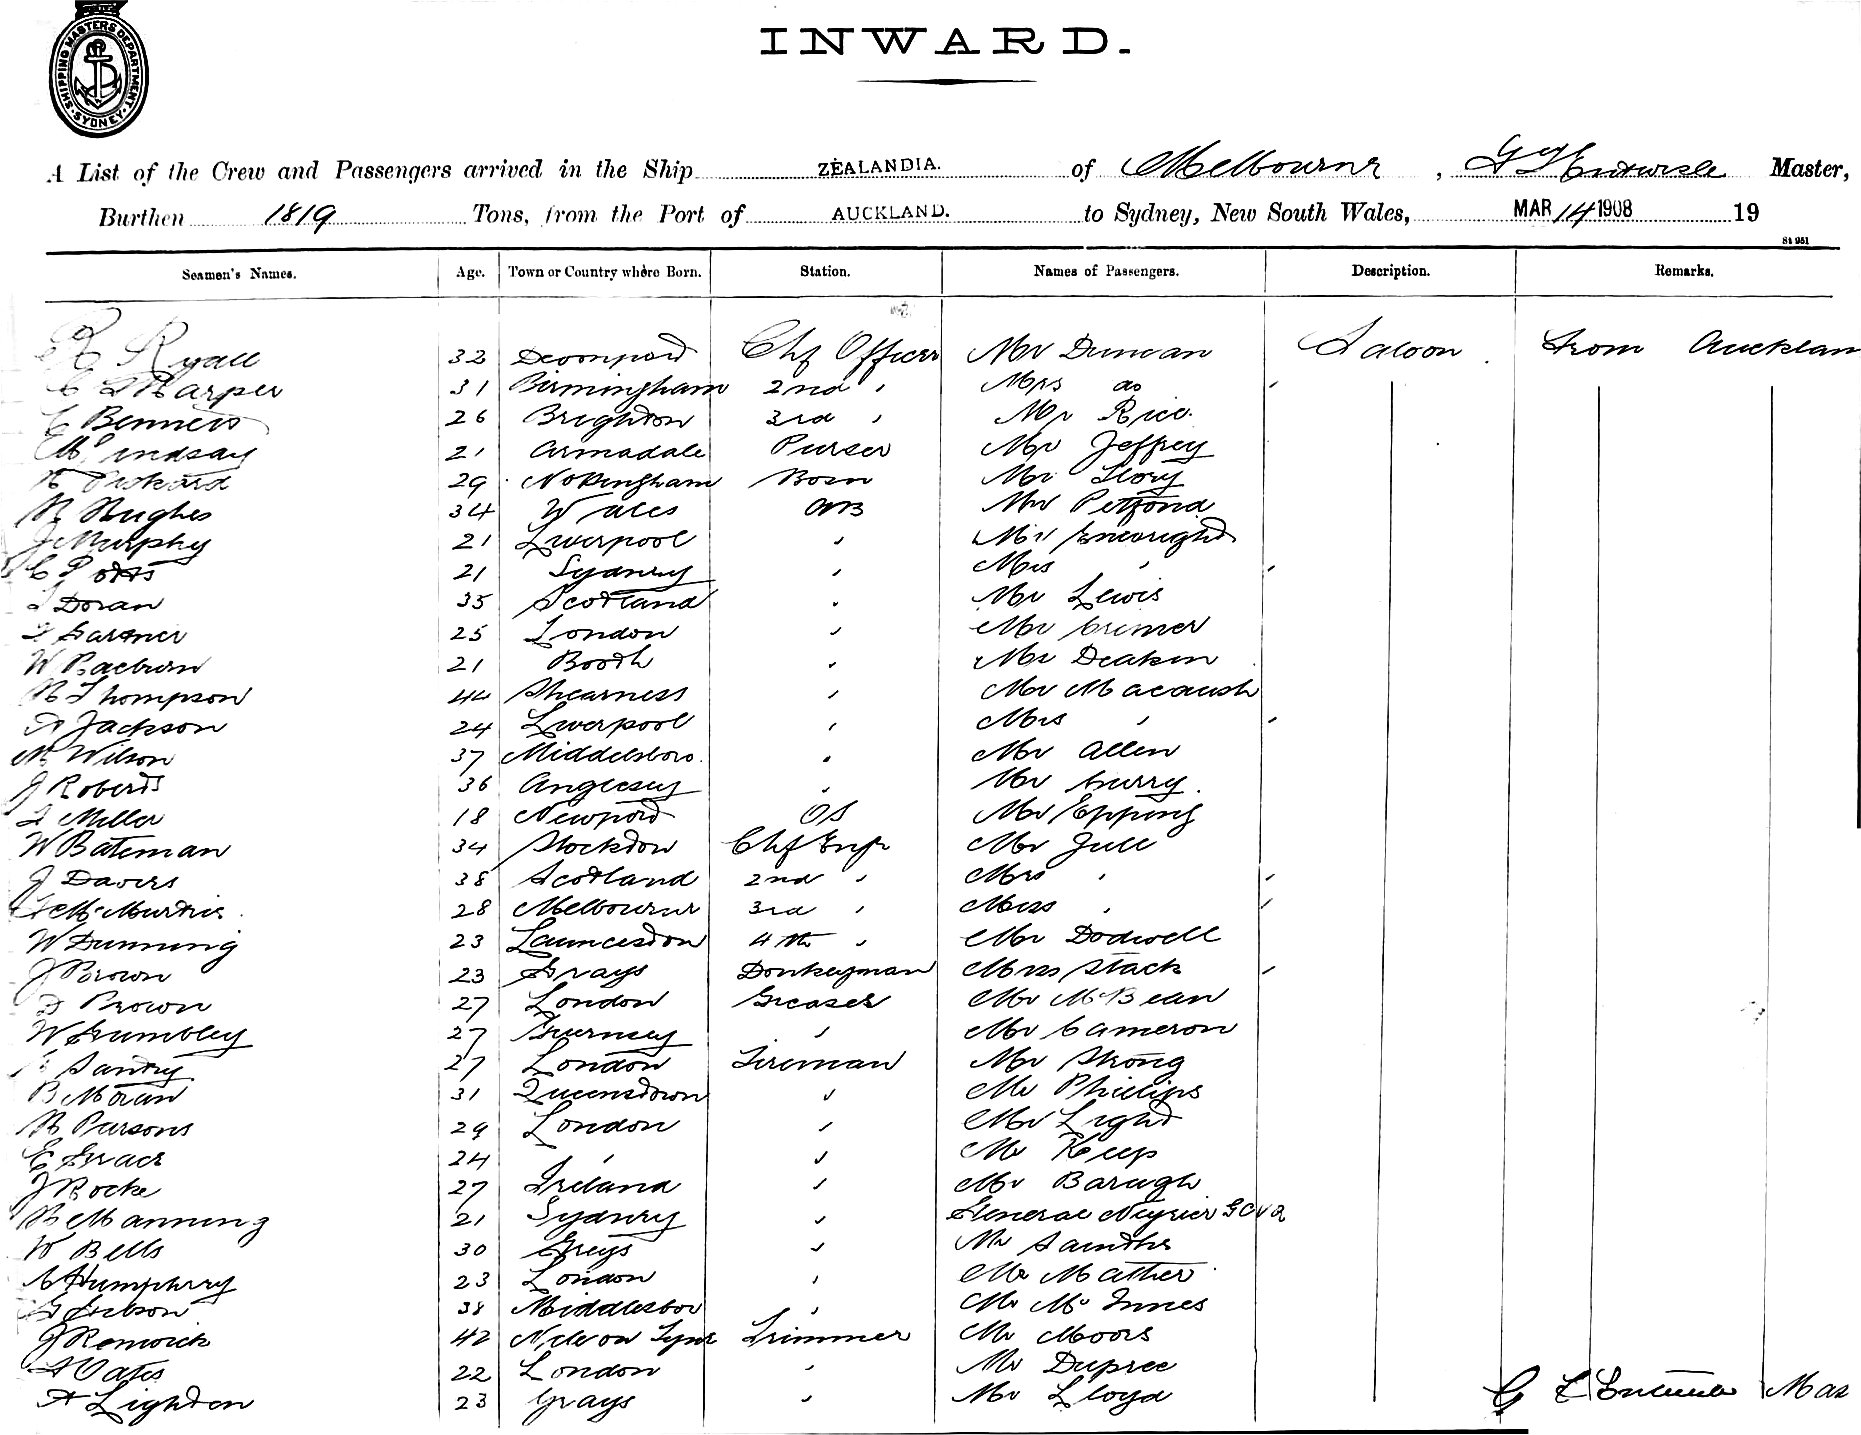 SHIPPING MASTERS DEPARTMENT SYDNEY
INWARD.
A List of the Crew and Passengers arrived in the Ship ZEALANDIA. of Melbourne, Master,
Burthen 1819 Tons, from the Port of AUCKLAND. to Sydney, New South Wales, MAR 14 1908 19
St 951
Seamen's Names. Age. Town or Country where Born. Station. Names of Passengers. Description. Remarks.
R Ryall 32 Devonport Chf Officer Mr Duncan Saloon From Aucklan
Harper 31 Birmingham 2nd " Mrs do "
C Bennett 26 Brighton 3rd " Mr Rice
21 Armadale Purser Mr Jeffrey
29 Nottingham Bosn Mr Story
R Hughes 34 Wales AB Mr Petford
J Murphy 21 Liverpool " Mr
C Potts 21 Sydney " Mrs " "
Doran 35 Scotland " Mr Lewis
Gartner 25 London " Mr Cremer
W Raeburn 21 Bootle " Mr Deakin
R Thompson 44 Shearness " Mr
A Jackson 24 Liverpool " Mrs " "
N Wilson 37 Middlesboro " Mr Allen
J Roberts 36 Anglesey " Mr Curry
Miller 18 Newport OS Mr Epping
W Bateman 34 Stockton Chf Engr Mr Jull
J Davies 38 Scotland 2nd " Mrs " "
McMurtrie 28 Melbourne 3rd " Miss " "
W Dunning 23 Launceston 4th " Mr Dodwell
J Brown 23 Grays Donkeyman Miss Stack "
Brown 27 London Greaser Mr McBean
W Grumbley 27 Guernsey " Mr Cameron
Santry 27 London Fireman Mr Strong
B Moran 31 Queenstown " Mr Phillips
R Parsons 29 London " Mr Light
E Grace 24 " " Mr Keep
J Rocke 27 Ireland " Mr Baragh
R Manning 21 Sydney " General
W Bells 30 Greys " Mr
C Humphrey 23 London " Mr Mather
G Gibson 38 Middlesbor " Mr McInnes
J Renwick 42 Trimmer Mr Moors
Oates 22 London " Mr Dupree
A Lighton 23 Grays " Mr Lloyd
Mas